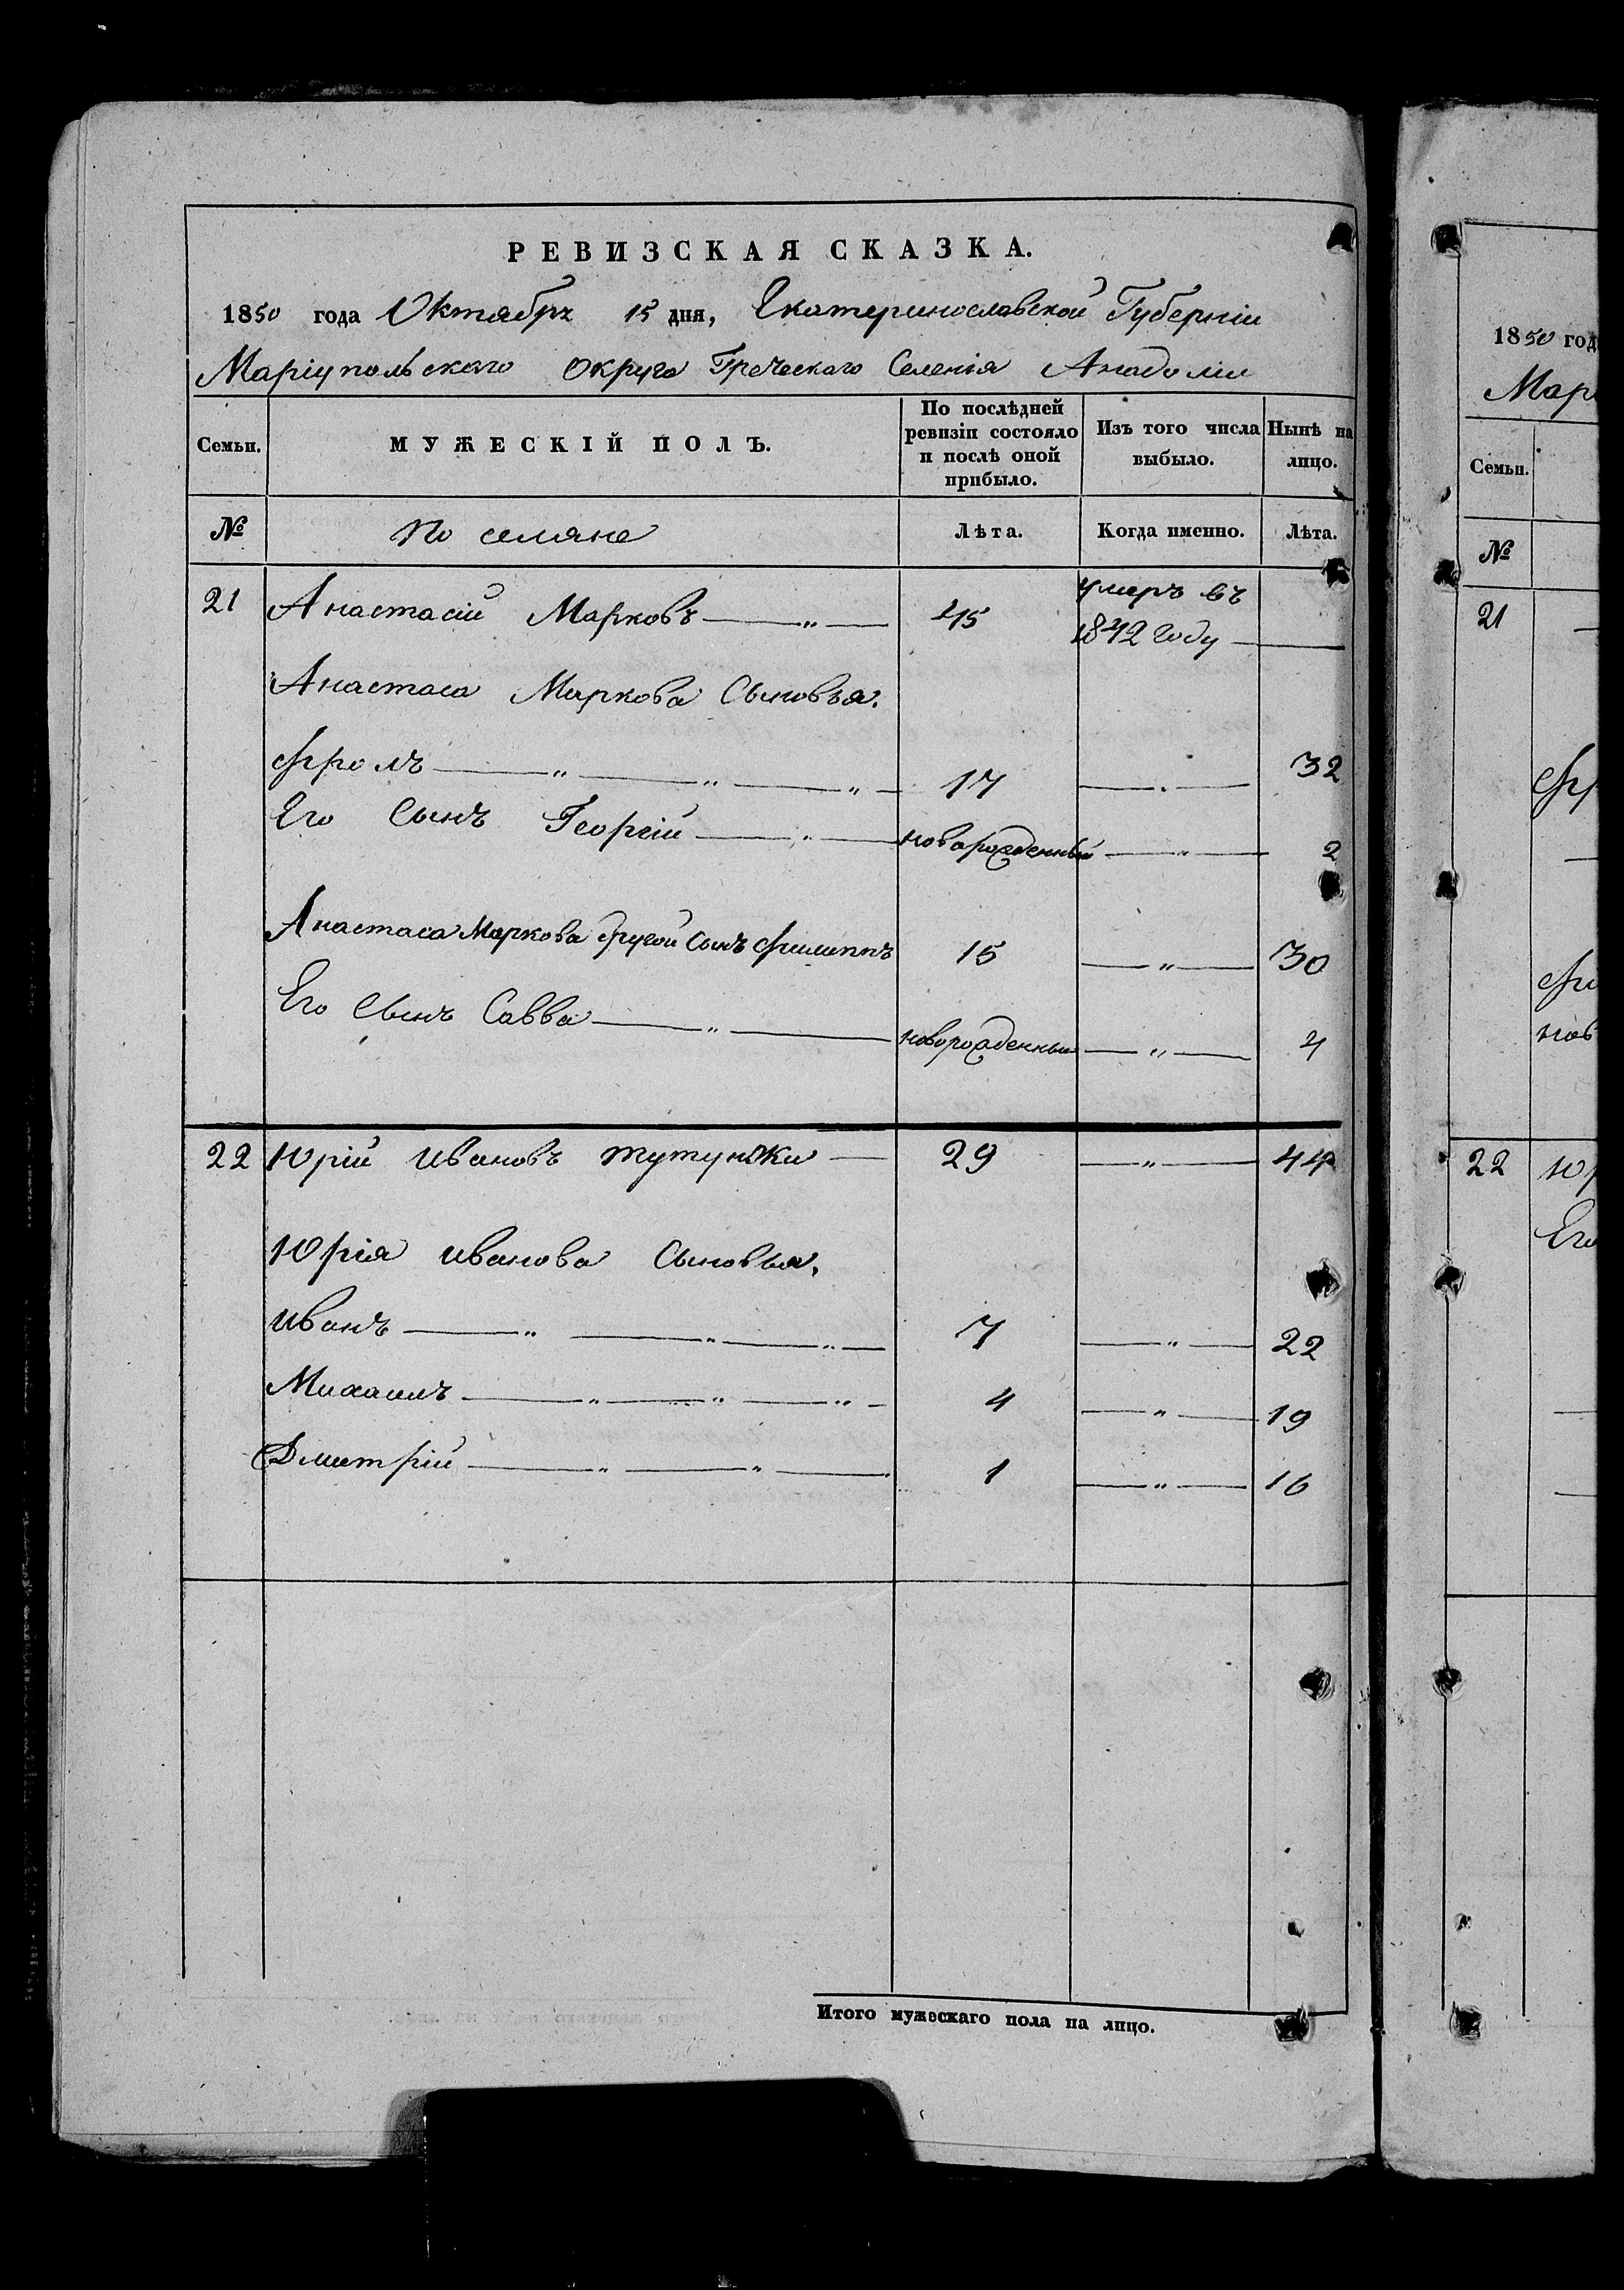 РЕВИЗСКАЯ СКАЗКА.
1850 года Октября 15 дня, Екатеринославской Губерніи
Маріупольскаго Округа Греческаго Селенія Анадоліи
Семьи.
МУЖЕСКІЙ ПОЛЪ.
По послѣдней ревизіи состояло и послѣ оной прибыло.
Изъ того числа выбыло.
Нынѣ на лицо.
№ Поселяне Лѣта. Когда именно. Лѣта.
21 Анастасій Марковъ 45 умеръ въ 1842 году
Анастаса Маркова Сыновья.
Фролъ 17 32
Его Сынъ Георгій новорожденный 2
Анастаса Маркова другой Сынъ Филиппъ 15 30
Его Сынъ Савва новорожденный 4
22 Юрій Ивановъ 29 44
Юрія Иванова Сыновья,
Иванъ 7 22
Михаилъ 4 19
Дмитрій 1 16
Итого мужескаго пола на лицо.
1850 год
Мар
Семьи.
№
21
22
Его